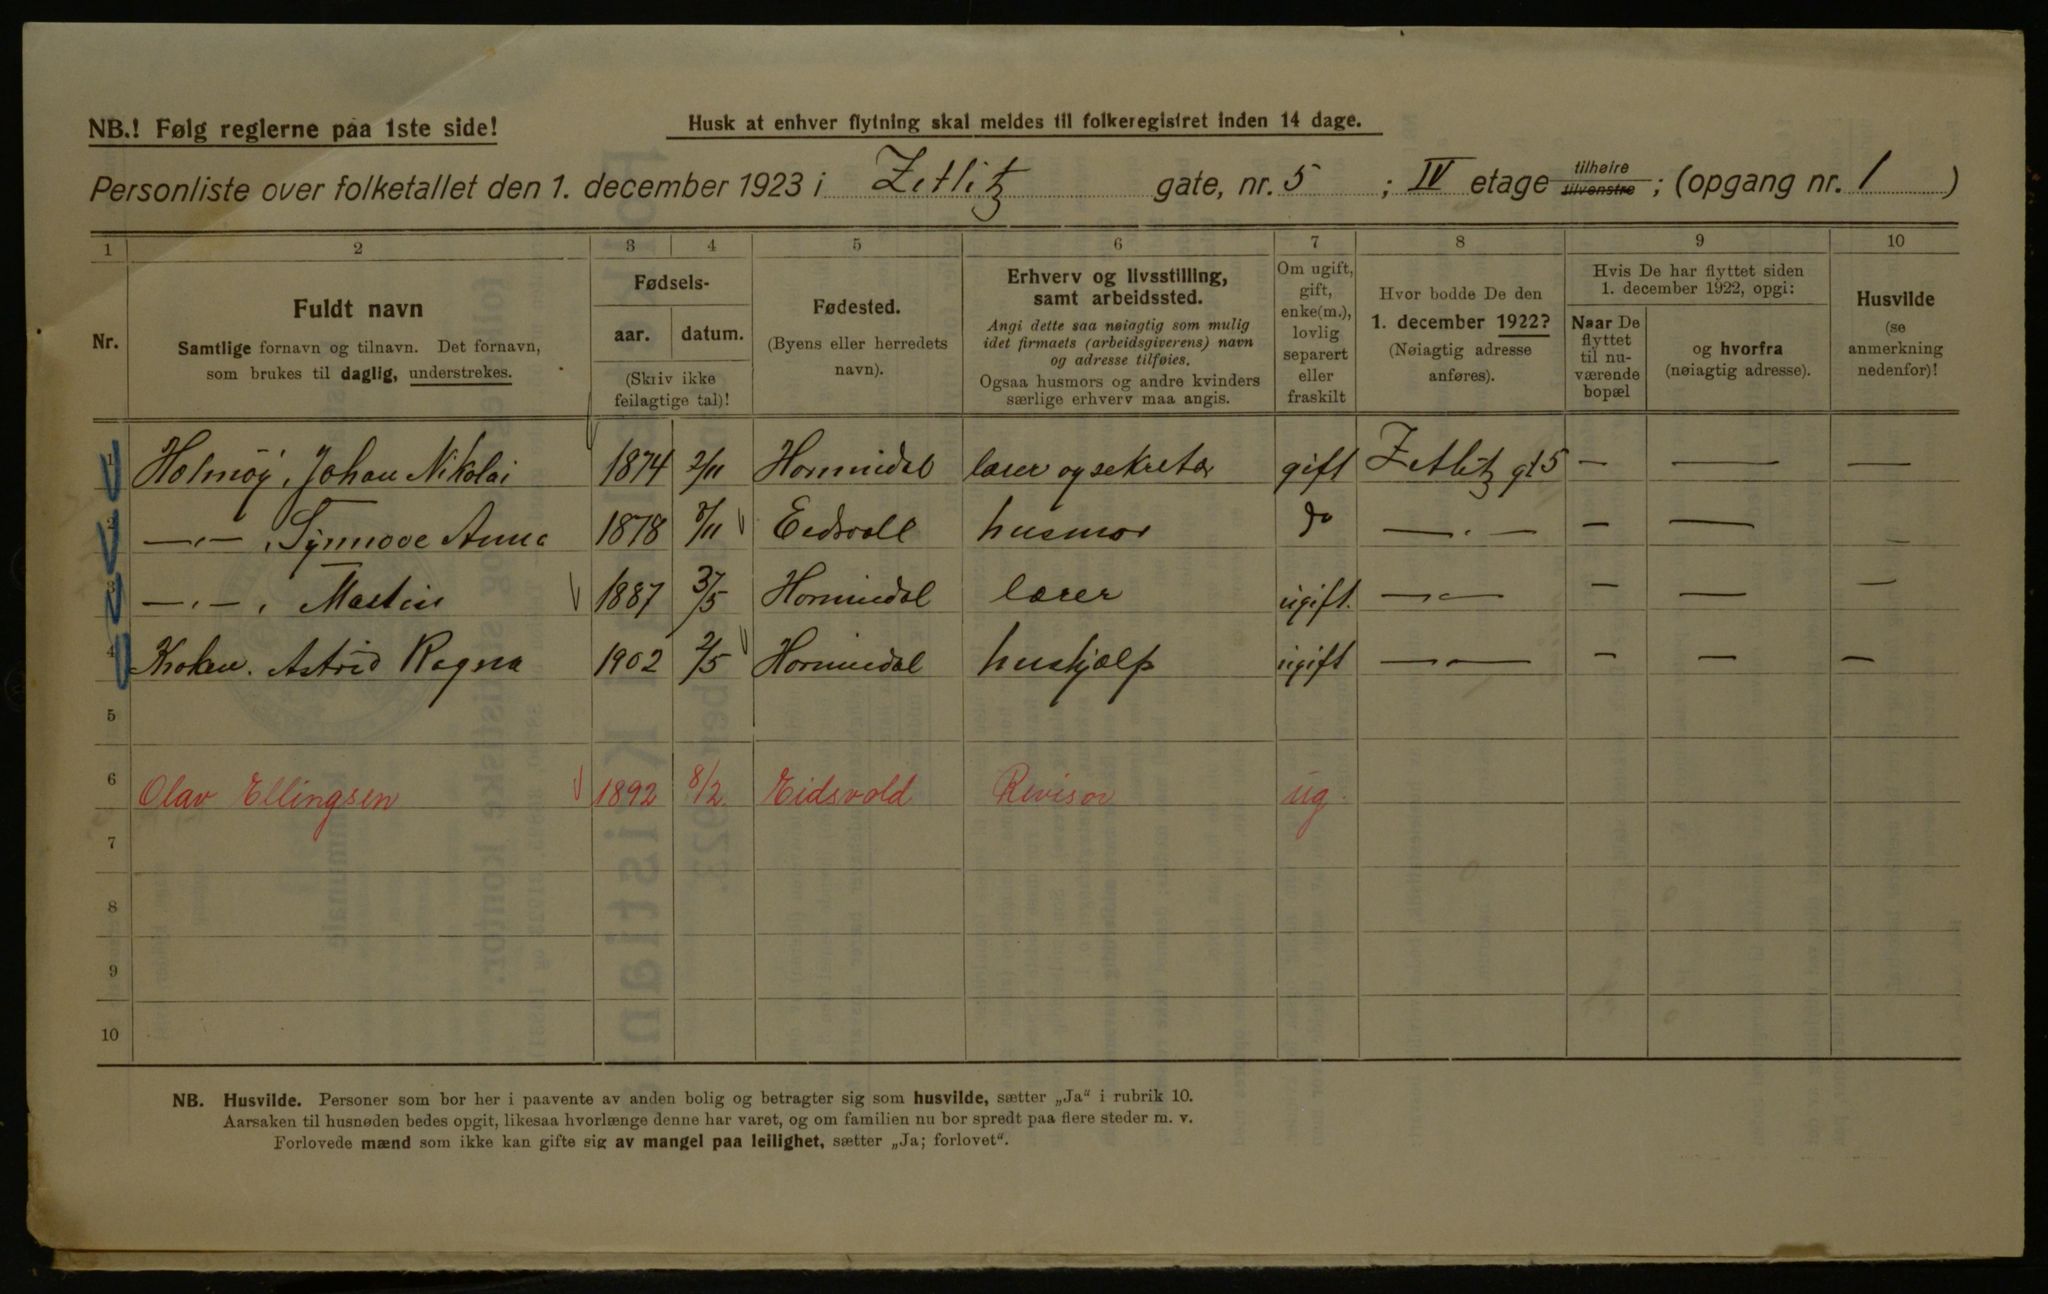 NB.! Følg reglerne paa 1ste side!
Husk at enhver flytning skal meldes til folkeregistret inden 14 dage.
Personliste over folketallet den 1. december 1923 i Zetlitz gate, nr. 5 ; IV etage tilhøire tilvenstre ; (opgang nr. 1 )
1 2 3 4 5 6 7 8 9 10
Nr.
Fuldt navn
Samtlige fornavn og tilnavn. Det fornavn,
som brukes til daglig, understrekes.
Fødsels-
aar. datum.
(Skriv ikke
feilagtige tal)!
Fødested.
(Byens eller herredets
navn).
Erhverv og livsstilling,
samt arbeidssted.
Angi dette saa nøiagtig som mulig
idet firmaets (arbeidsgiverens) navn
og adresse tilføies.
Ogsaa husmors og andre kvinders
særlige erhverv maa angis.
Om ugift,
gift,
enke(m.),
lovlig
separert
eller
fraskilt
Hvor bodde De den
1. december 1922?
(Nøiagtig adresse
anføres).
Hvis De har flyttet siden
1. december 1922, opgi:
Naar De
flyttet
til nu-
værende
bopæl
og hvorfra
(nøiagtig adresse).
Husvilde
(se
anmerkning
nedenfor)!
1 Holmøy, Johan Nikolai 1874 2/11 Hornindal lærer og sekretær gift Zetlitz gt 5 — — —
2 —„— , Synnove Anna 1878 /11 Eidsvoll husmor do —„— — — —
3 —„— , Martin 1887 /5 Hornindal lærer ugift. —„— — — —
4 Kroken. Astrid Ragna 1902 2/5 Hornindal hushjælp ugift —„— — — —
5
6 Olav Ellingsen 1892 8/2 Eidsvold Revisor ug.
7
8
9
10
NB. Husvilde. Personer som bor her i paavente av anden bolig og betragter sig som husvilde, sætter „Ja“ i rubrik 10.
Aarsaken til husnøden bedes opgit, likesaa hvorlænge denne har varet, og om familien nu bor spredt paa flere steder m. v.
Forlovede mænd som ikke kan gifte sig av mangel paa leilighet, sætter „Ja; forlovet“.